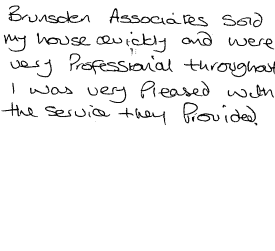 Brunsden Associates Sold
my house quickly and were
very Professional throughout
I was very Pleased with
the service they Provided.